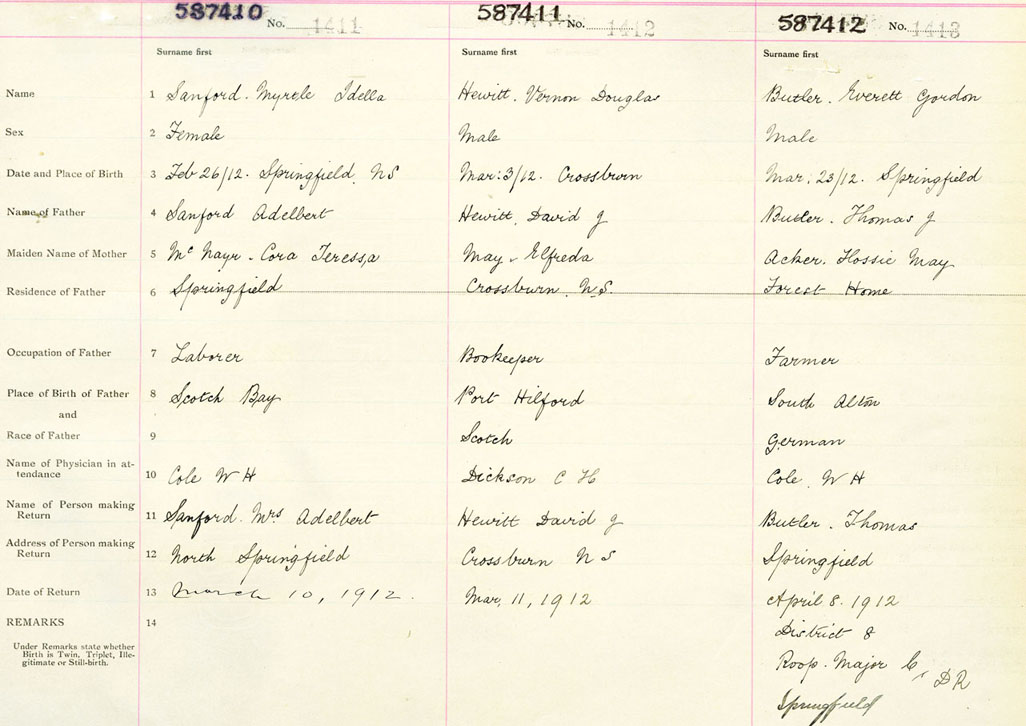 587410 No. 1411 587411 No. 1412 587412 No. 1413
Surname first Surname first Surname first
Name 1 Sanford. Myrtle Idella Hewitt. Vernon Douglas Butler. Everett Gordon
Sex 2 Female Male Male
Date and Place of Birth 3 Feb 26/12. Springfield NS Mar: 3/12. Crossburn Mar: 23/12. Springfield
Name of Father 4 Sanford Adelbert Hewitt, David J Butler. Thomas J
Maiden Name of Mother 5 Mc Nayr - Cora Teressa May - Elfreda Acker. Flossie May
Residence of Father 6 Springfield Crossburn N.S. Forest Home
Occupation of Father 7 Laborer Bookeeper Farmer
Place of Birth of Father 8 Scotch Bay Port Hilford South Alton
and
Race of Father 9 Scotch German
Name of Physician in at-
tendance 10 Cole W H Dickson C H Cole W H
Name of Person making
Return 11 Sanford. Mrs Adelbert Hewitt David J Butler. Thomas
Address of Person making
Return 12 North Springfield Crossburn N S Springfield
Date of Return 13 March 10, 1912. Mar, 11, 1912 April 8. 1912
REMARKS 14 District 8
Under Remarks state whether
Birth is Twin, Triplet, Ille-
gitimate or Still-birth.
Roop. Major C, DR
Springfield